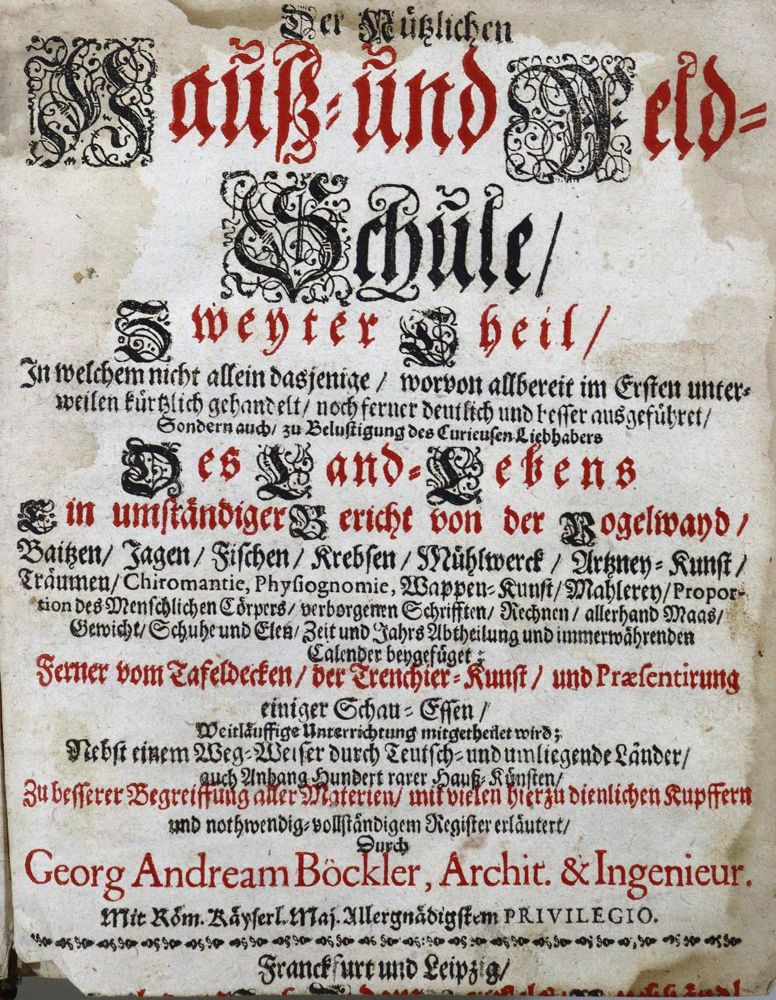 Der Nützlichen
Hauß- und Feld-
Schule/
Zweyter Theil/
In welchem nicht allein dasjenige/ worvon allbereit im Ersten unter-
weilen kürtzlich gehandelt/ noch ferner deutlich und besser ausgeführet/
Sondern auch/ zu Belustigung des Curieusen Liebhabers
Des Land-Lebens
Ein umständiger Bericht von der Vogelwayd/
Baitzen/ Jagen/ Fischen/ Krebsen/ Mühlwerck/ Artzney-Kunst/
Träumen/ Chiromantie, Physiognomie, Wappen-Kunst/ Mahlerey/ Propor-
tion des Menschlichen Cörpers/ verborgenen Schrifften/ Rechnen/ allerhand Maas/
Gewicht/ Schuhe und Elen/ Zeit und Jahrs Abtheilung und immerwährenden
Calender beygefüget;
Ferner vom Tafeldecken/ der Trenchier-Kunst/ und Præsentirung
einiger Schau-Essen/
Weitläuffige Unterrichtung mitgetheilet wird;
Nebst einem Weg-Weiser durch Teutsch- und umliegende Länder/
auch Anhang Hundert rarer Hauß-Künsten/
Zu besserer Begreiffung aller Materien/ mit vielen hierzu dienlichen Kupffern
und nothwendig-vollständigem Register erläutert/
Durch
Georg Andream Böckler, Archit. & Ingenieur.
Mit Röm. Käyserl. Maj. Allergnädigstem PRIVILEGIO.
Franckfurt und Leipzig/